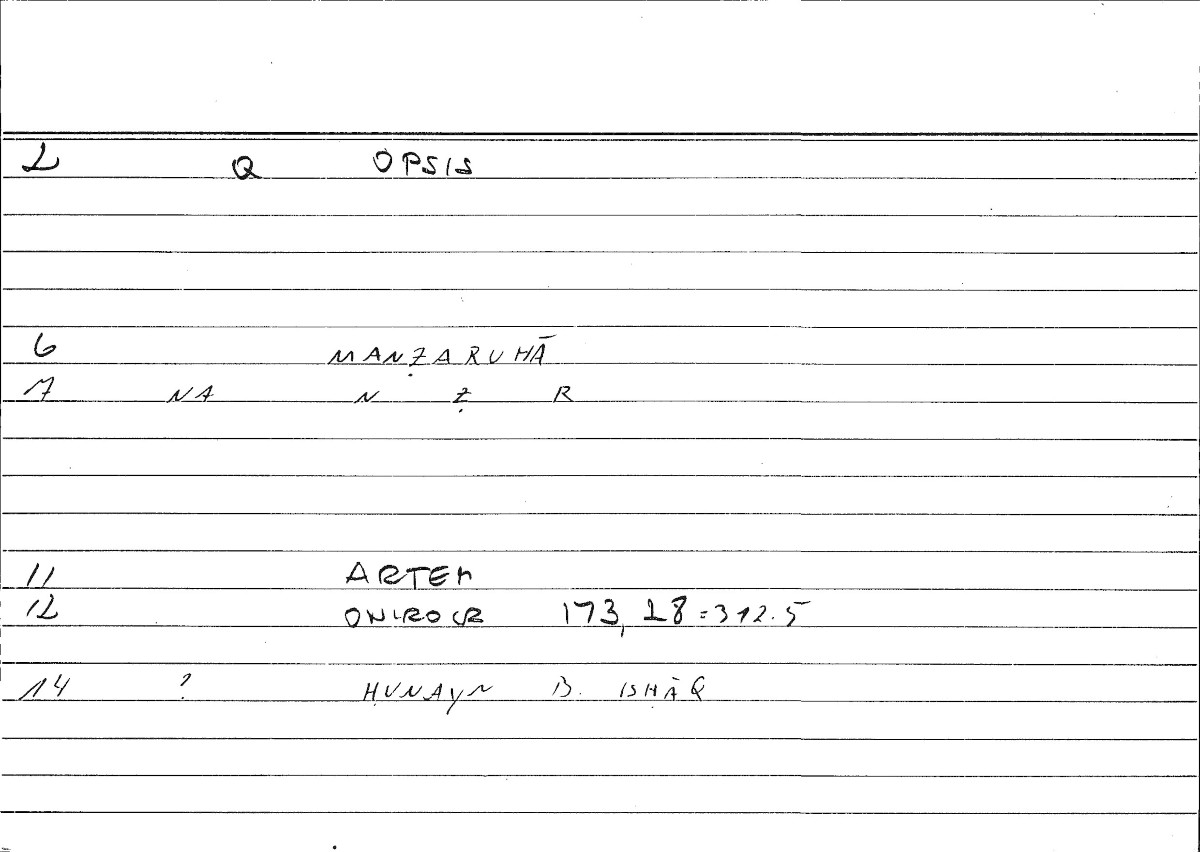 2 Q OPSIS
6 MANẒARUHĀ
7 NA N Ẓ R
11 ARTEM
12 ONIROCR 173, 18 = 312.5
14 ? ḤUNAYN B. ISḤĀQ